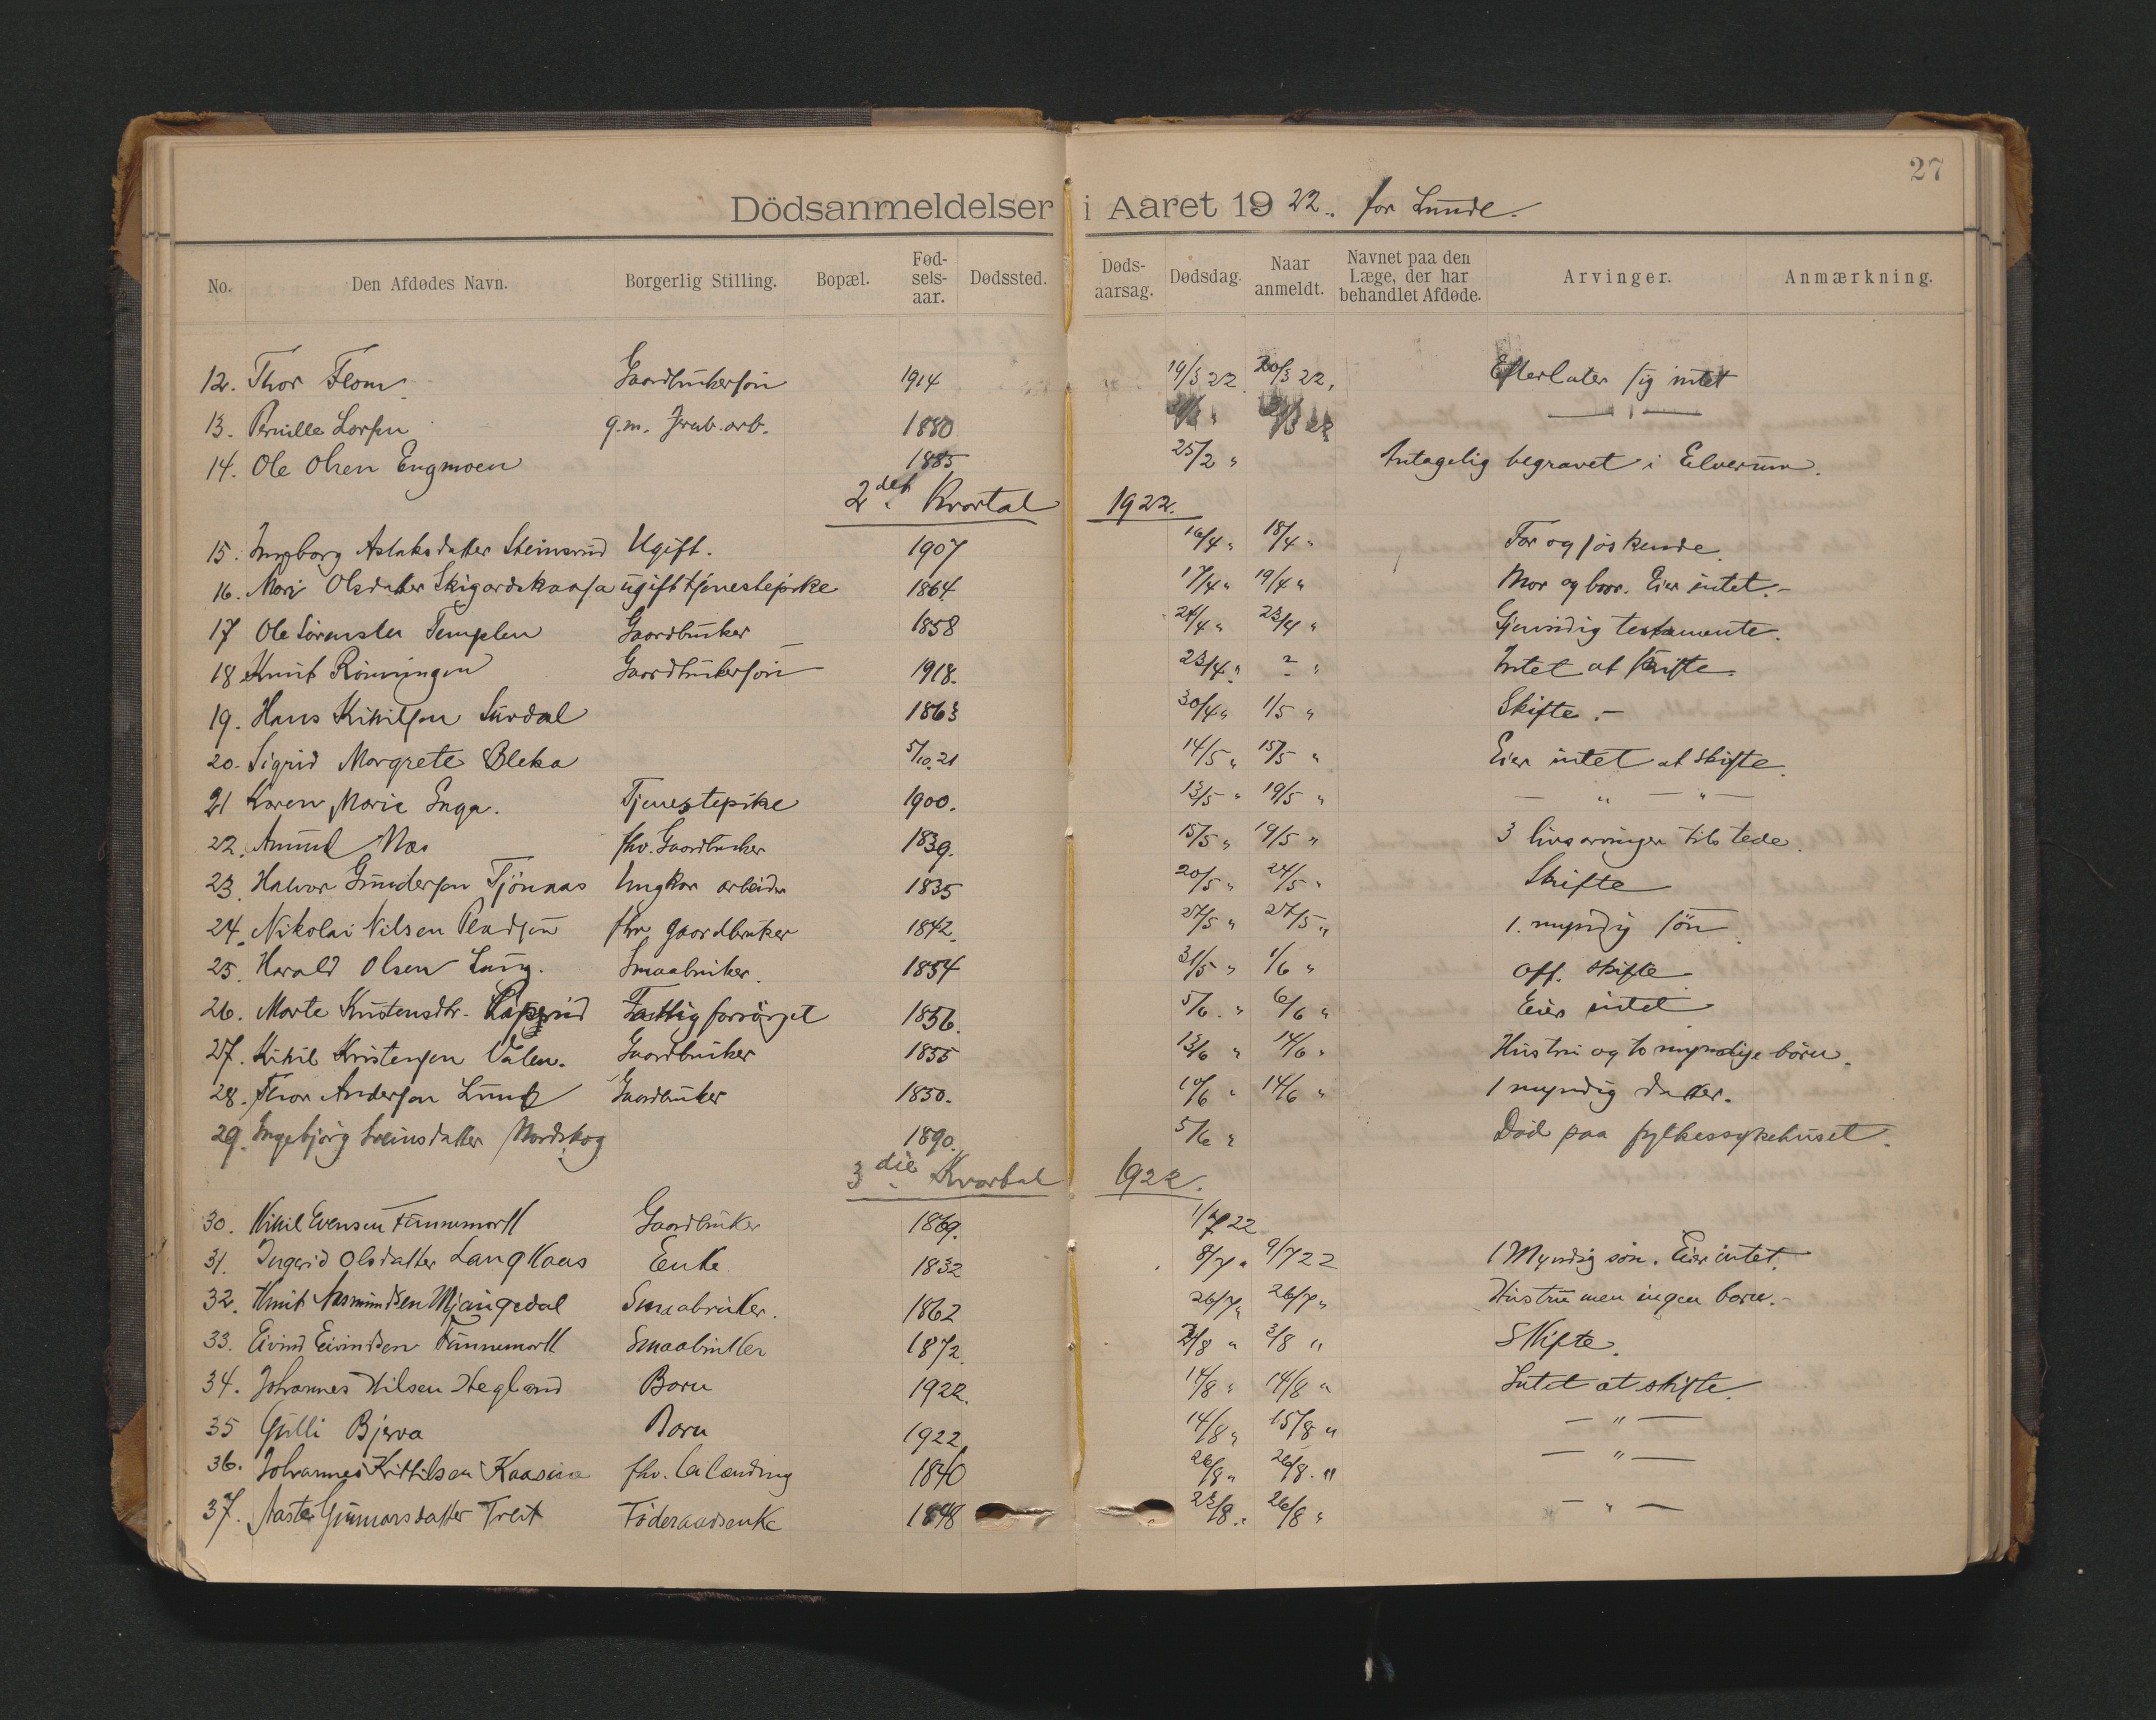 27
Dödsanmeldelser i Aaret 1922. for Lunde.
No. Den Afdødes Navn. Borgerlig Stilling. Bopæl. Fød-sels-aar. Dødssted. Døds-aarsag. Dødsdag. Naar anmeldt. Navnet paa den Læge, der har behandlet Afdøde. Arvinger. Anmærkning.
12. Thor Flom Gaardbrukersøn 1914 14/3 22 20/3 22, Efterlater sig intet
13. Pernille Larsen g.m. Jernb. arb. 1880 — " —
14. Ole Olsen Engmoen 1885 25/2 " Antagelig begravet i Elverum.
2det Kvartal 1922.
15. Ingborg Aslaksdatter Steinsrud Ugift. 1907 16/4 " 18/4 " Far og søskende.
16. Mari Olsdatter Skigardskaasa ugift tjenestepike 1864 17/4 " 19/4 " Mor og bror. Eier intet.-
17 Ole Sørensen Templen Gaardbruker 1858 21/4 " 23/4 " Gjensidig testamente.
18 Knut Rønningen Gaardbrukersøn 1918. 23/4 " ? " Intet at skifte
19. Hans Kittilsen Surdal 1863 30/4 " 1/5 " Skifte.-
20. Sigrid Margrete Bleka 5/10.21 14/5 " 15/5 " Eier intet at skifte.
21 Karen Marie Enga. Tjenestepike 1900. 13/5 " 19/5 " — " — " —
22. Amund Næs fhv. Gaardbruker 1839. 15/5 " 19/5 " 3 livsarvinger tilstede.
23. Halvor Gundersen Tjönaas Ungkar arbeider 1835 20/5 " 24/5 " Skifte
24. Nikolai Nilsen fhv gaardbruker 1842. 27/5 " 27/5 " 1. myndig søn.
25. Harald Olsen Smaabruker. 1854 31/5 " 1/6 " Off. skifte
26. Marte Kristensdtr. Fattigforsörget 1856. 5/6. " 6/6 " Eier intet
27. Kitil Kristensen Valen. Gaardbruker 1855 13/6 " 14/6 " Hustru og to myndige børn.
28. Thor Andersen Lund Gaardbruker 1850. 10/6 " 14/6 " 1 myndig datter.
29. Ingebjörg Sveinsdatter Nordskog 1890. 5/6 " Død paa fylkessykehuset.
3die Kvartal 1922.
30. Kitil Evensen Funnemark Gaardbruker 1869. 1/7 22
31. Ingerid Olsdatter Langkaas Enke 1832 8/7 " 9/7 22 1 Myndig søn. Eier intet.
32. Knut Aasmundsen Mjaugedal Smaabruker. 1862 26/7 " 26/7 " Hustru men ingen born.-
33. Eivind Eivindsen Funnemark Smaabruker 1872. 2/8 " 3/8 " Skifte.
34. Johannes Nilsen Hegland Barn 1922. 14/8 " 14/8 " Intet at skifte.
35 Gulli Bjerva Barn 1922 14/8 " 15/8 " — " —
36. Johannes Kittilsen Kaasene fhv. leilænding 1840 26/8 " 26/8. " — " —
37. Aaste Gunnarsdatter Treit Föderaadsenke 1848 23/8. " 26/8 " — " —